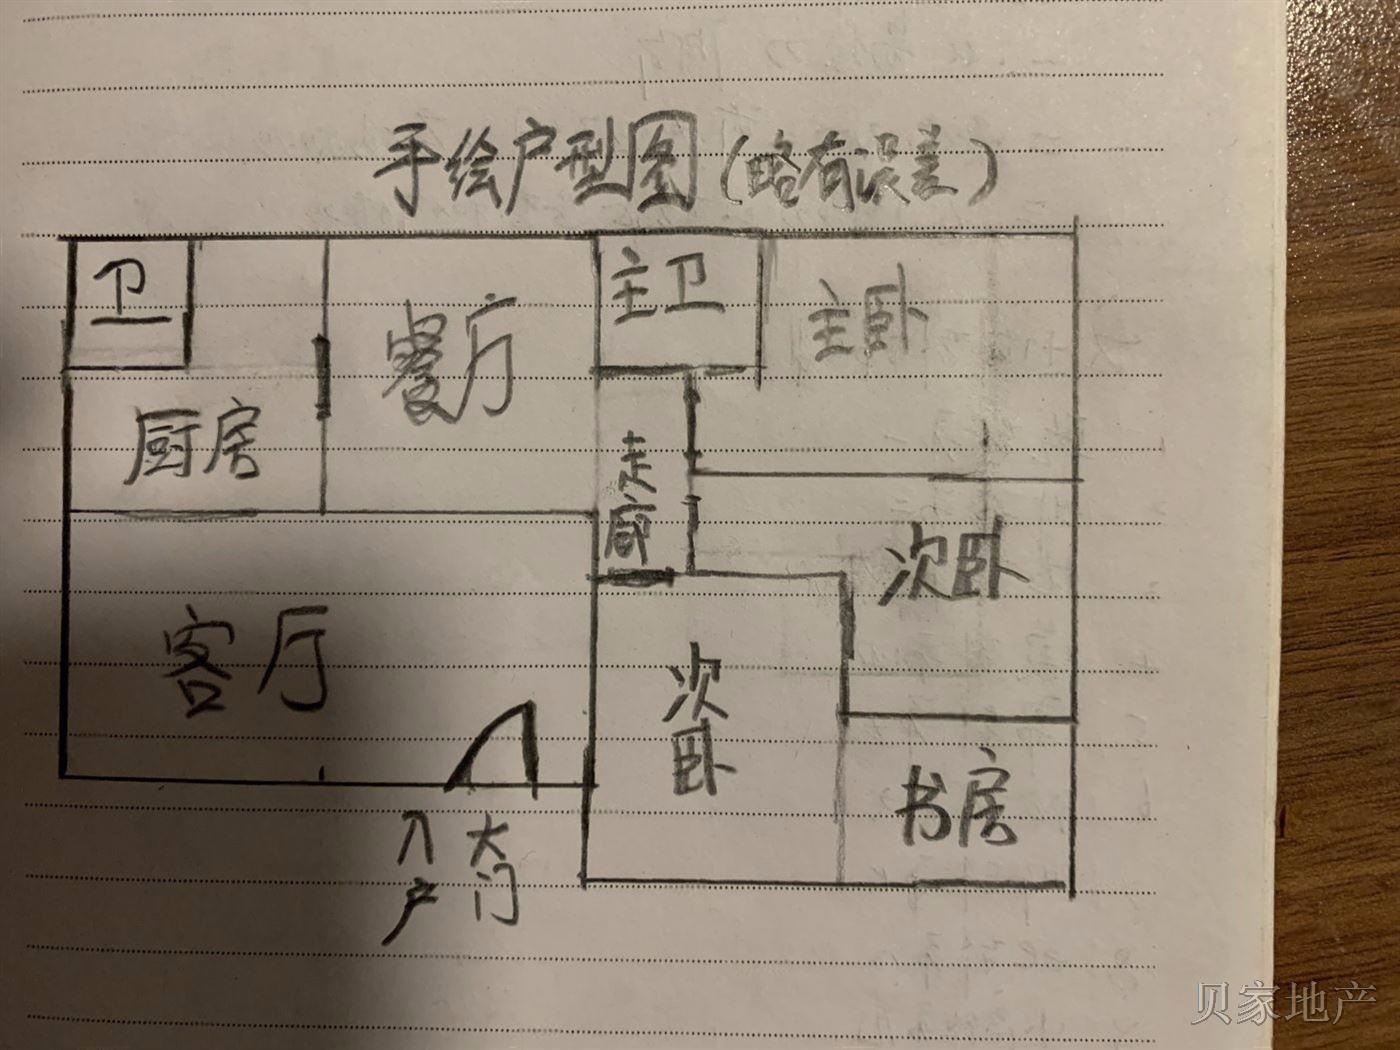 手绘户型图(略有误差)
卫
主卫
主卧
餐厅
厨房
走廊
次卧
客厅
次卧
书房
入户
大门
贝家地产